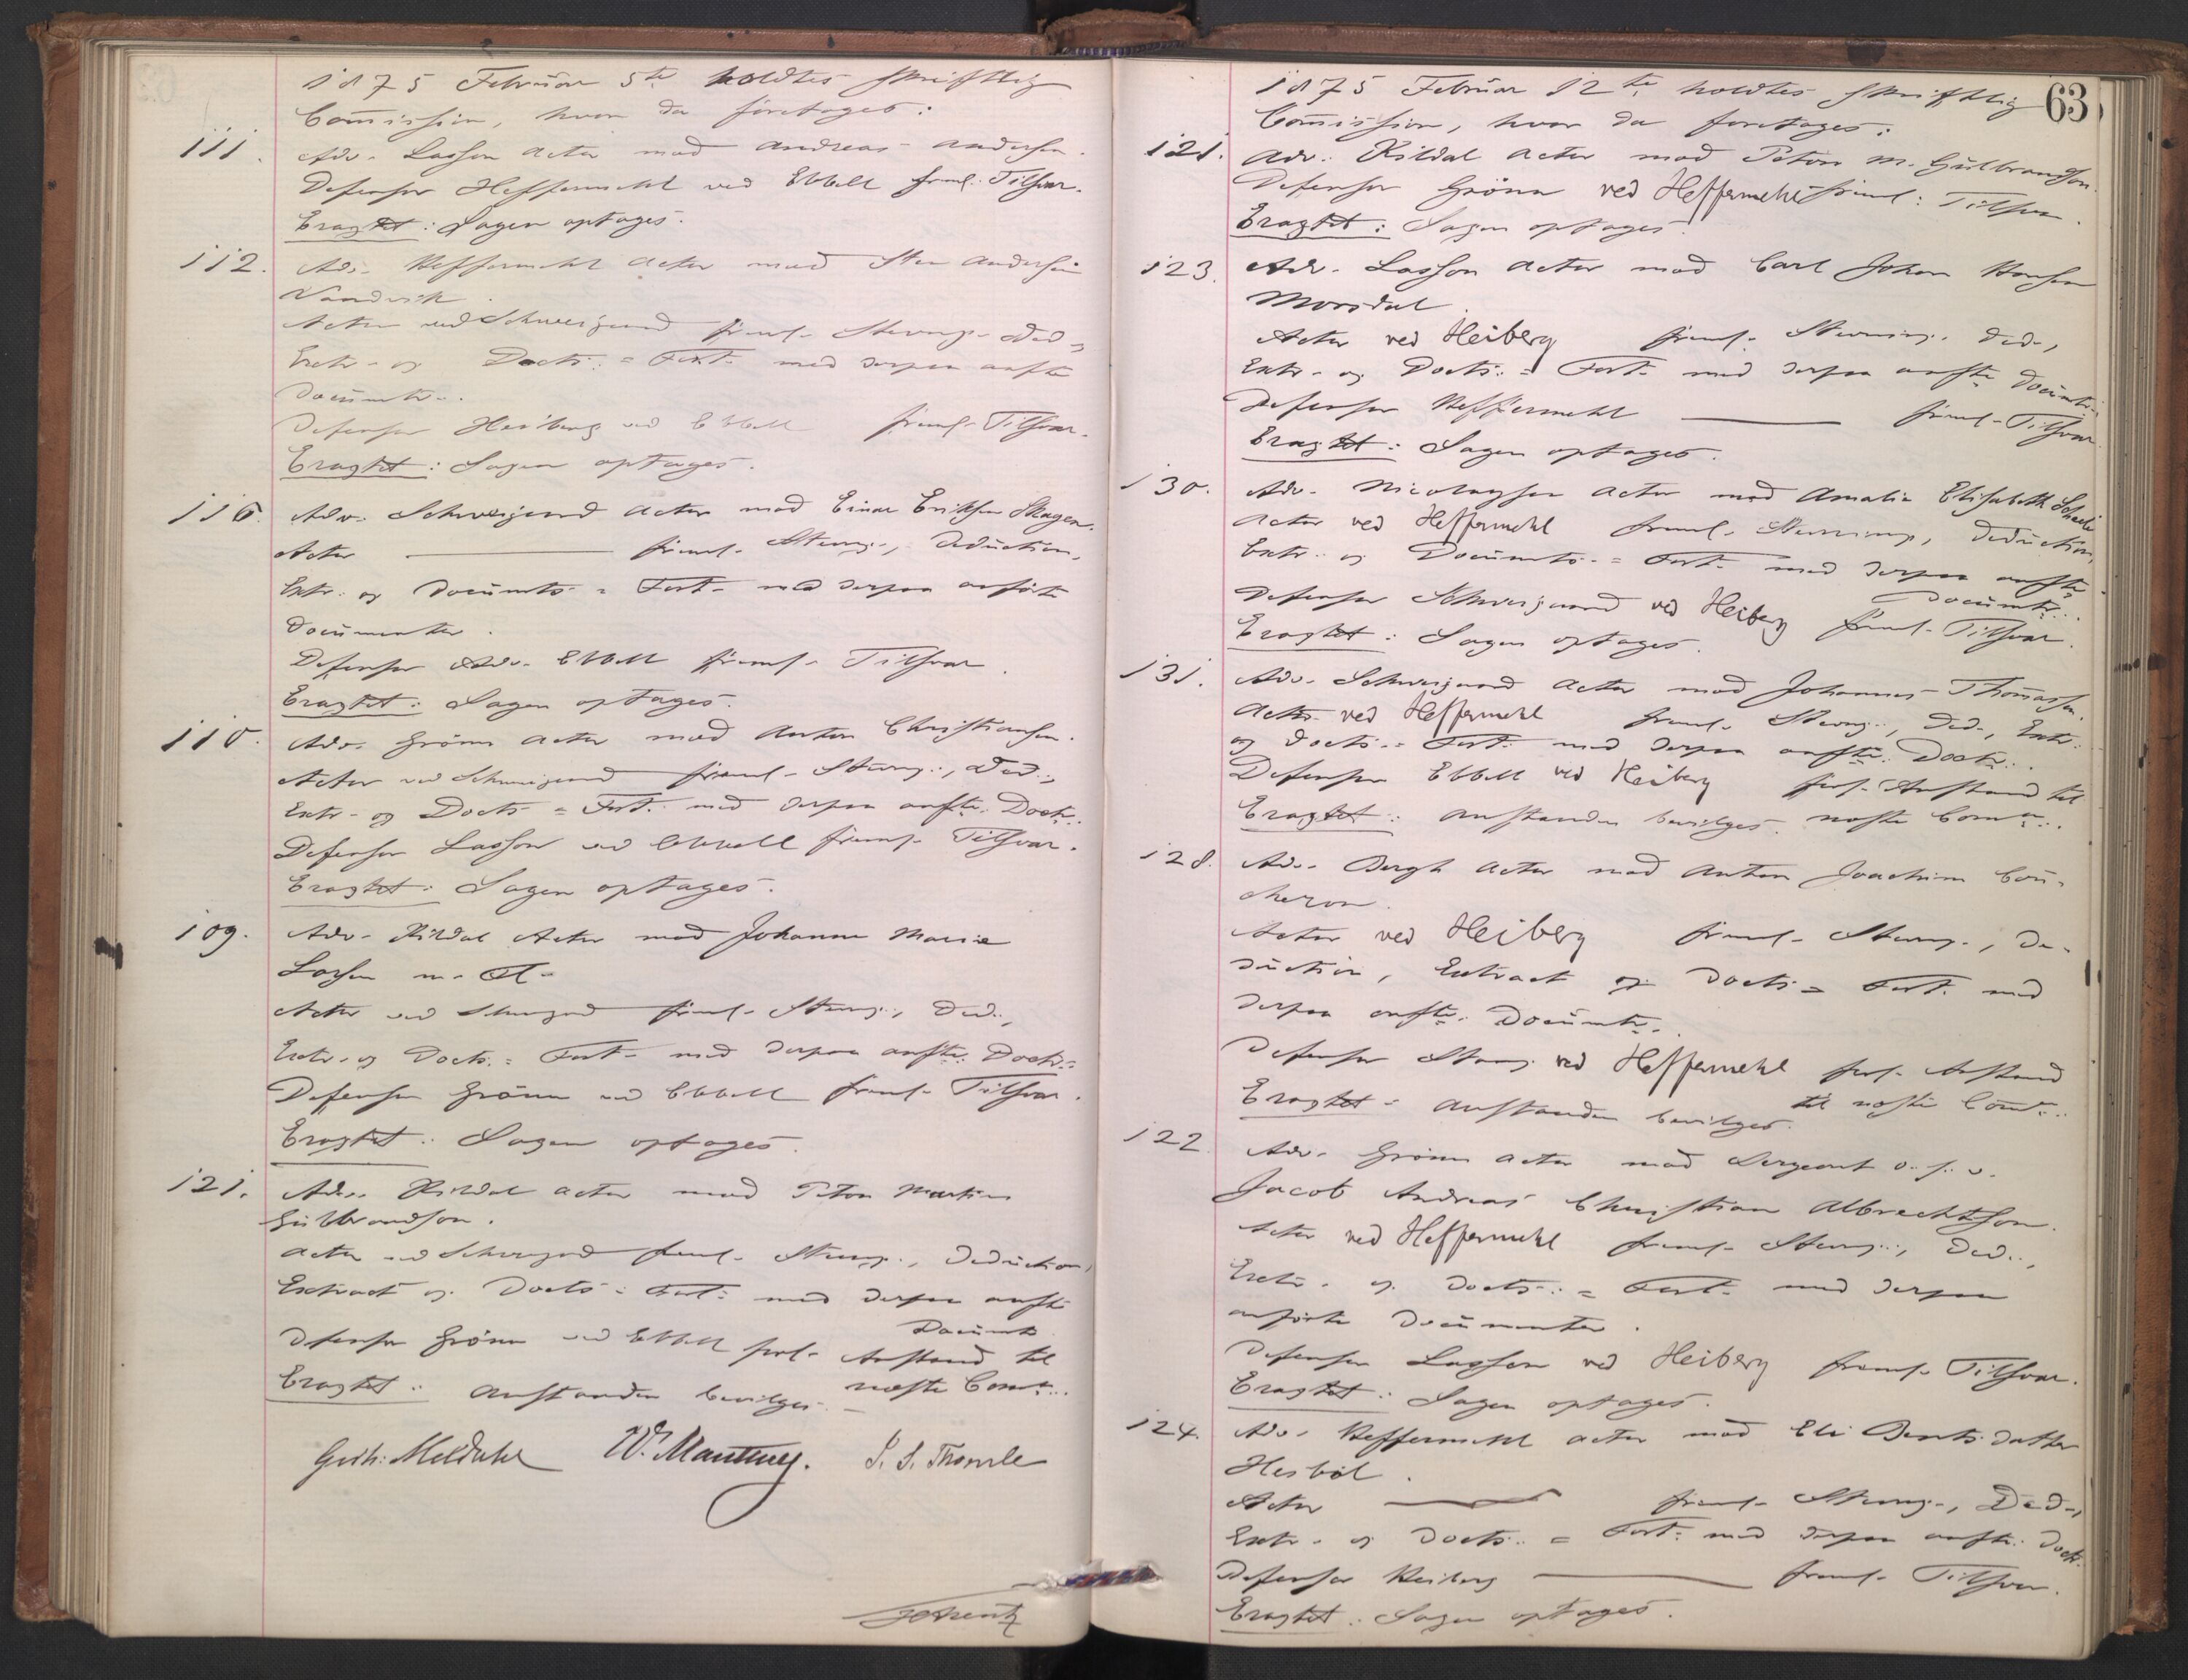 1875 Februar 5te holdtes skriftlig
Commission, hvor da foretoges:
111. Adv. Lasson Actor mod Andreas Andersen.
Defensor Heffermehl ved Ebbell freml. Tilsvar.
Eragtet: Sagen optages.
112. Adv. Heffermehl Actor mod Sten Andersen
Sandvik.
Actor ved Schweigaard freml. Stevng. Ded.,
Extr. og Docts. = Fort. med derpaa anfte
Documtr.
Defensor Heiberg ved Ebbell freml. Tilsvar.
Eragtet: Sagen optages.
116. Adv. Schweigaard Actor mod Einar Eriksen Skagen.
Actor — freml. Stevng., Deduction,
Extr. og Documts. = Fort. med derpaa anførte
Documenter.
Defensor Adv. Ebbell freml. Tilsvar.
Eragtet: Sagen optages.
110. Adv. Grönn Actor mod Anton Christiansen.
Actor ved Schweigaard freml. Stevng., Ded.,
Extr. og Docts. = Fort. med derpaa anfte. Doctr.
Defensor Lasson ved Ebbell freml. Tilsvar.
Eragtet: Sagen optages.
109. Adv. Kildal Actor mod Johanne Marie
Larsen m. Fl.
Actor ved Schweigaard freml. Stevng., Ded.,
Extr. og Docts. = Fort. med derpaa anfte. Doctr.
Defensor Grönn ved Ebbell freml. Tilsvar.
Eragtet: Sagen optages.
121. Adv. Kildal Actor mod Peter Martin
Gulbrandsen.
Actor ved Schweigaard freml. Stevng., Deduction,
Extract og Docts. = Fort. med derpaa anfte
Documtr.
Defensor Grönn ved Ebbell forl. Anstand til
næste Comn.
Eragtet: Anstanden bevilges.
W. Manthey.
63
1875 Februar 12te holdtes skriftlig
Commission, hvor da foretoges:
121. Adv. Kildal Actor mod Peter M. Gulbrandsen.
Defensor Grönn ved Heffermehl freml. Tilsvar.
Eragtet: Sagen optages.
123. Adv. Lasson Actor mod Carl Johan Hansen
Morsdal.
Actor ved Heiberg freml. Stevning, Ded.,
Extr. og Docts. = Fort. med derpaa anfte Documtr.
Defensor Heffermehl — freml. Tilsvar.
Eragtet: Sagen optages.
130. Adv. Nicolaysen Actor mod Amalie Elisabeth
Actor ved Heffermehl freml. Stevning, Deduction,
Extr. og Documts. = Fort. med derpaa anfte
Documtr.
Defensor Schweigaard ved Heiberg freml. Tilsvar.
Eragtet: Sagen optages.
131. Adv. Schweigaard Actor mod Johannes Thomassen.
Actor ved Heffermehl freml. Stevng., Ded., Extr.
og Docts. = Fort. med derpaa anfte. Doctr.
Defensor Ebbell ved Heiberg forl. Anstand til
næste Comn.
Eragtet: Anstanden bevilges.
128. Adv. Bergh Actor mod Anton Joachim Cou-
cheron.
Actor ved Heiberg freml. Stevng., De-
duction, Extract og Docts. = Fort. med
derpaa anfte. Documtr.
Defensor Stang ved Heffermehl forl. Anstand
til næste Comn.
Eragtet: Anstanden bevilges.
122. Adv. Grönn Actor mod Sergeant
Jacob Andreas Christian Albrechtson.
Actor ved Heffermehl freml. Stevng., Ded.,
Extr. og Docts. = Fort. med derpaa
anførte Documenter.
Defensor Lasson ved Heiberg freml. Tilsvar.
Eragtet: Sagen optages.
124. Adv. Heffermehl Actor mod Eli Berntsdatter
Hesböl.
Actor — freml. Stevng., Ded.,
Extr. og Docts. = Fort. med derpaa anfte. Doctr.
Defensor Heiberg — freml. Tilsvar.
Eragtet: Sagen optages.